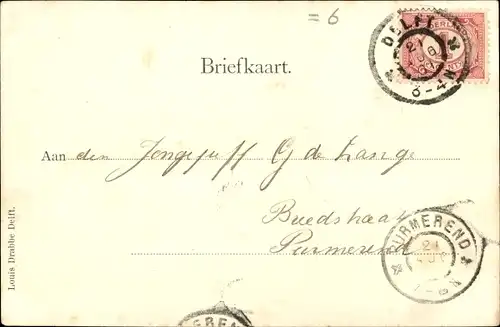 = 6
DELFT
3-4N
Briefkaart.
Aan den Jongejuff G de Lange
Breedstraat
Purmerend
PURMEREND
21
Louis Drabbe Delft.